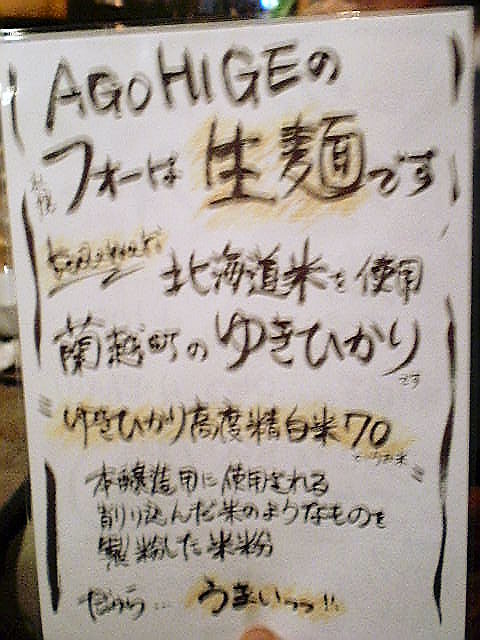 AGOHIGEの
札幌
フォーは 生麺です
北海道米を使用
蘭越町のゆきひかり
です
ゆきひかり高度精白米70
というお米
本醸造用に使用される
削り込んだ米のようなものを
製粉した米粉
だから… うまいっっ!!